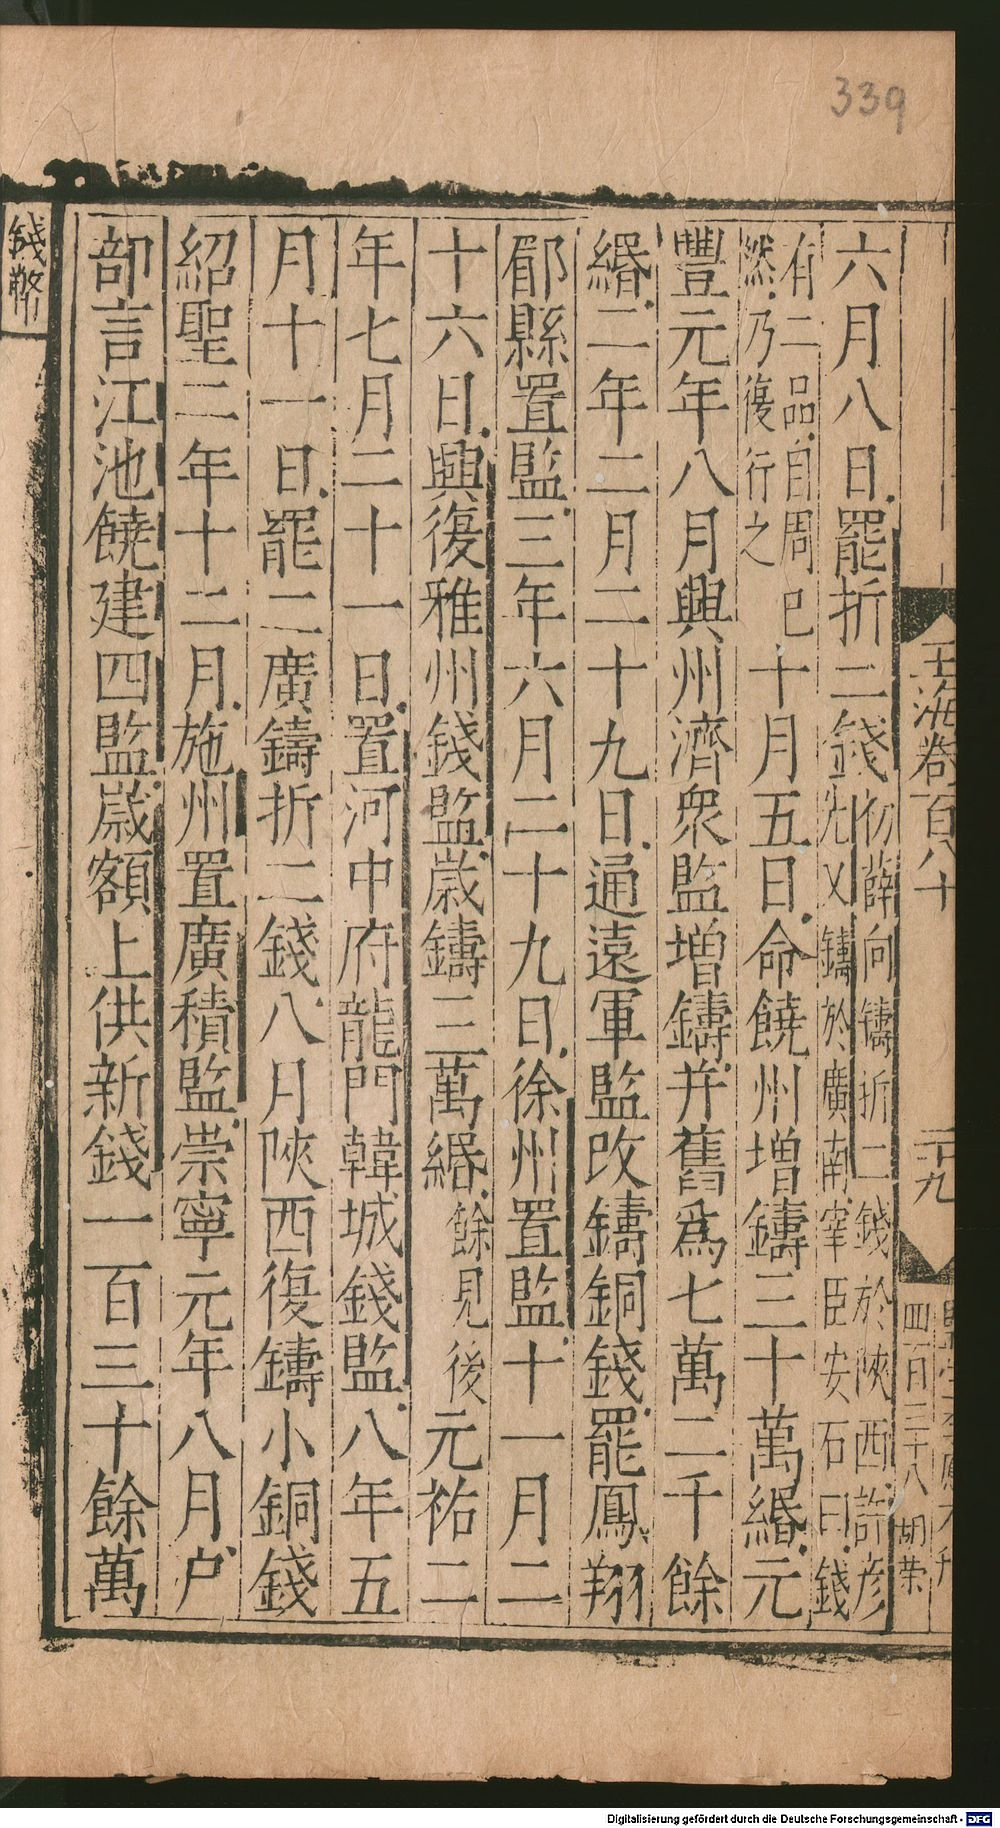 339
玉海卷百八十
二十九
四百三十八 胡荣
六月八日罷折二錢初薛向鑄折二錢於陝西許彦
先又鑄於廣南宰臣安石曰錢
有二品自周已
然乃復行之十月五日命饒州增鑄三十萬緡元
豐元年八月興州濟衆監增鑄并舊爲七萬二千餘
緡二年二月二十九日通遠軍監改鑄銅錢罷鳳翔
郿縣置監三年六月二十九日徐州置監十一月二
十六日興復雅州錢監歲鑄三萬緡餘見後元祐二
年七月二十一日置河中府龍門韓城錢監八年五
月十一日罷二廣鑄折二錢八月陝西復鑄小銅錢
紹聖二年十二月施州置廣積監崇寧元年八月户
部言江池饒建四監歲額上供新錢一百三十餘萬
錢幣
Digitalisierung gefördert durch die Deutsche Forschungsgemeinschaft - DFG